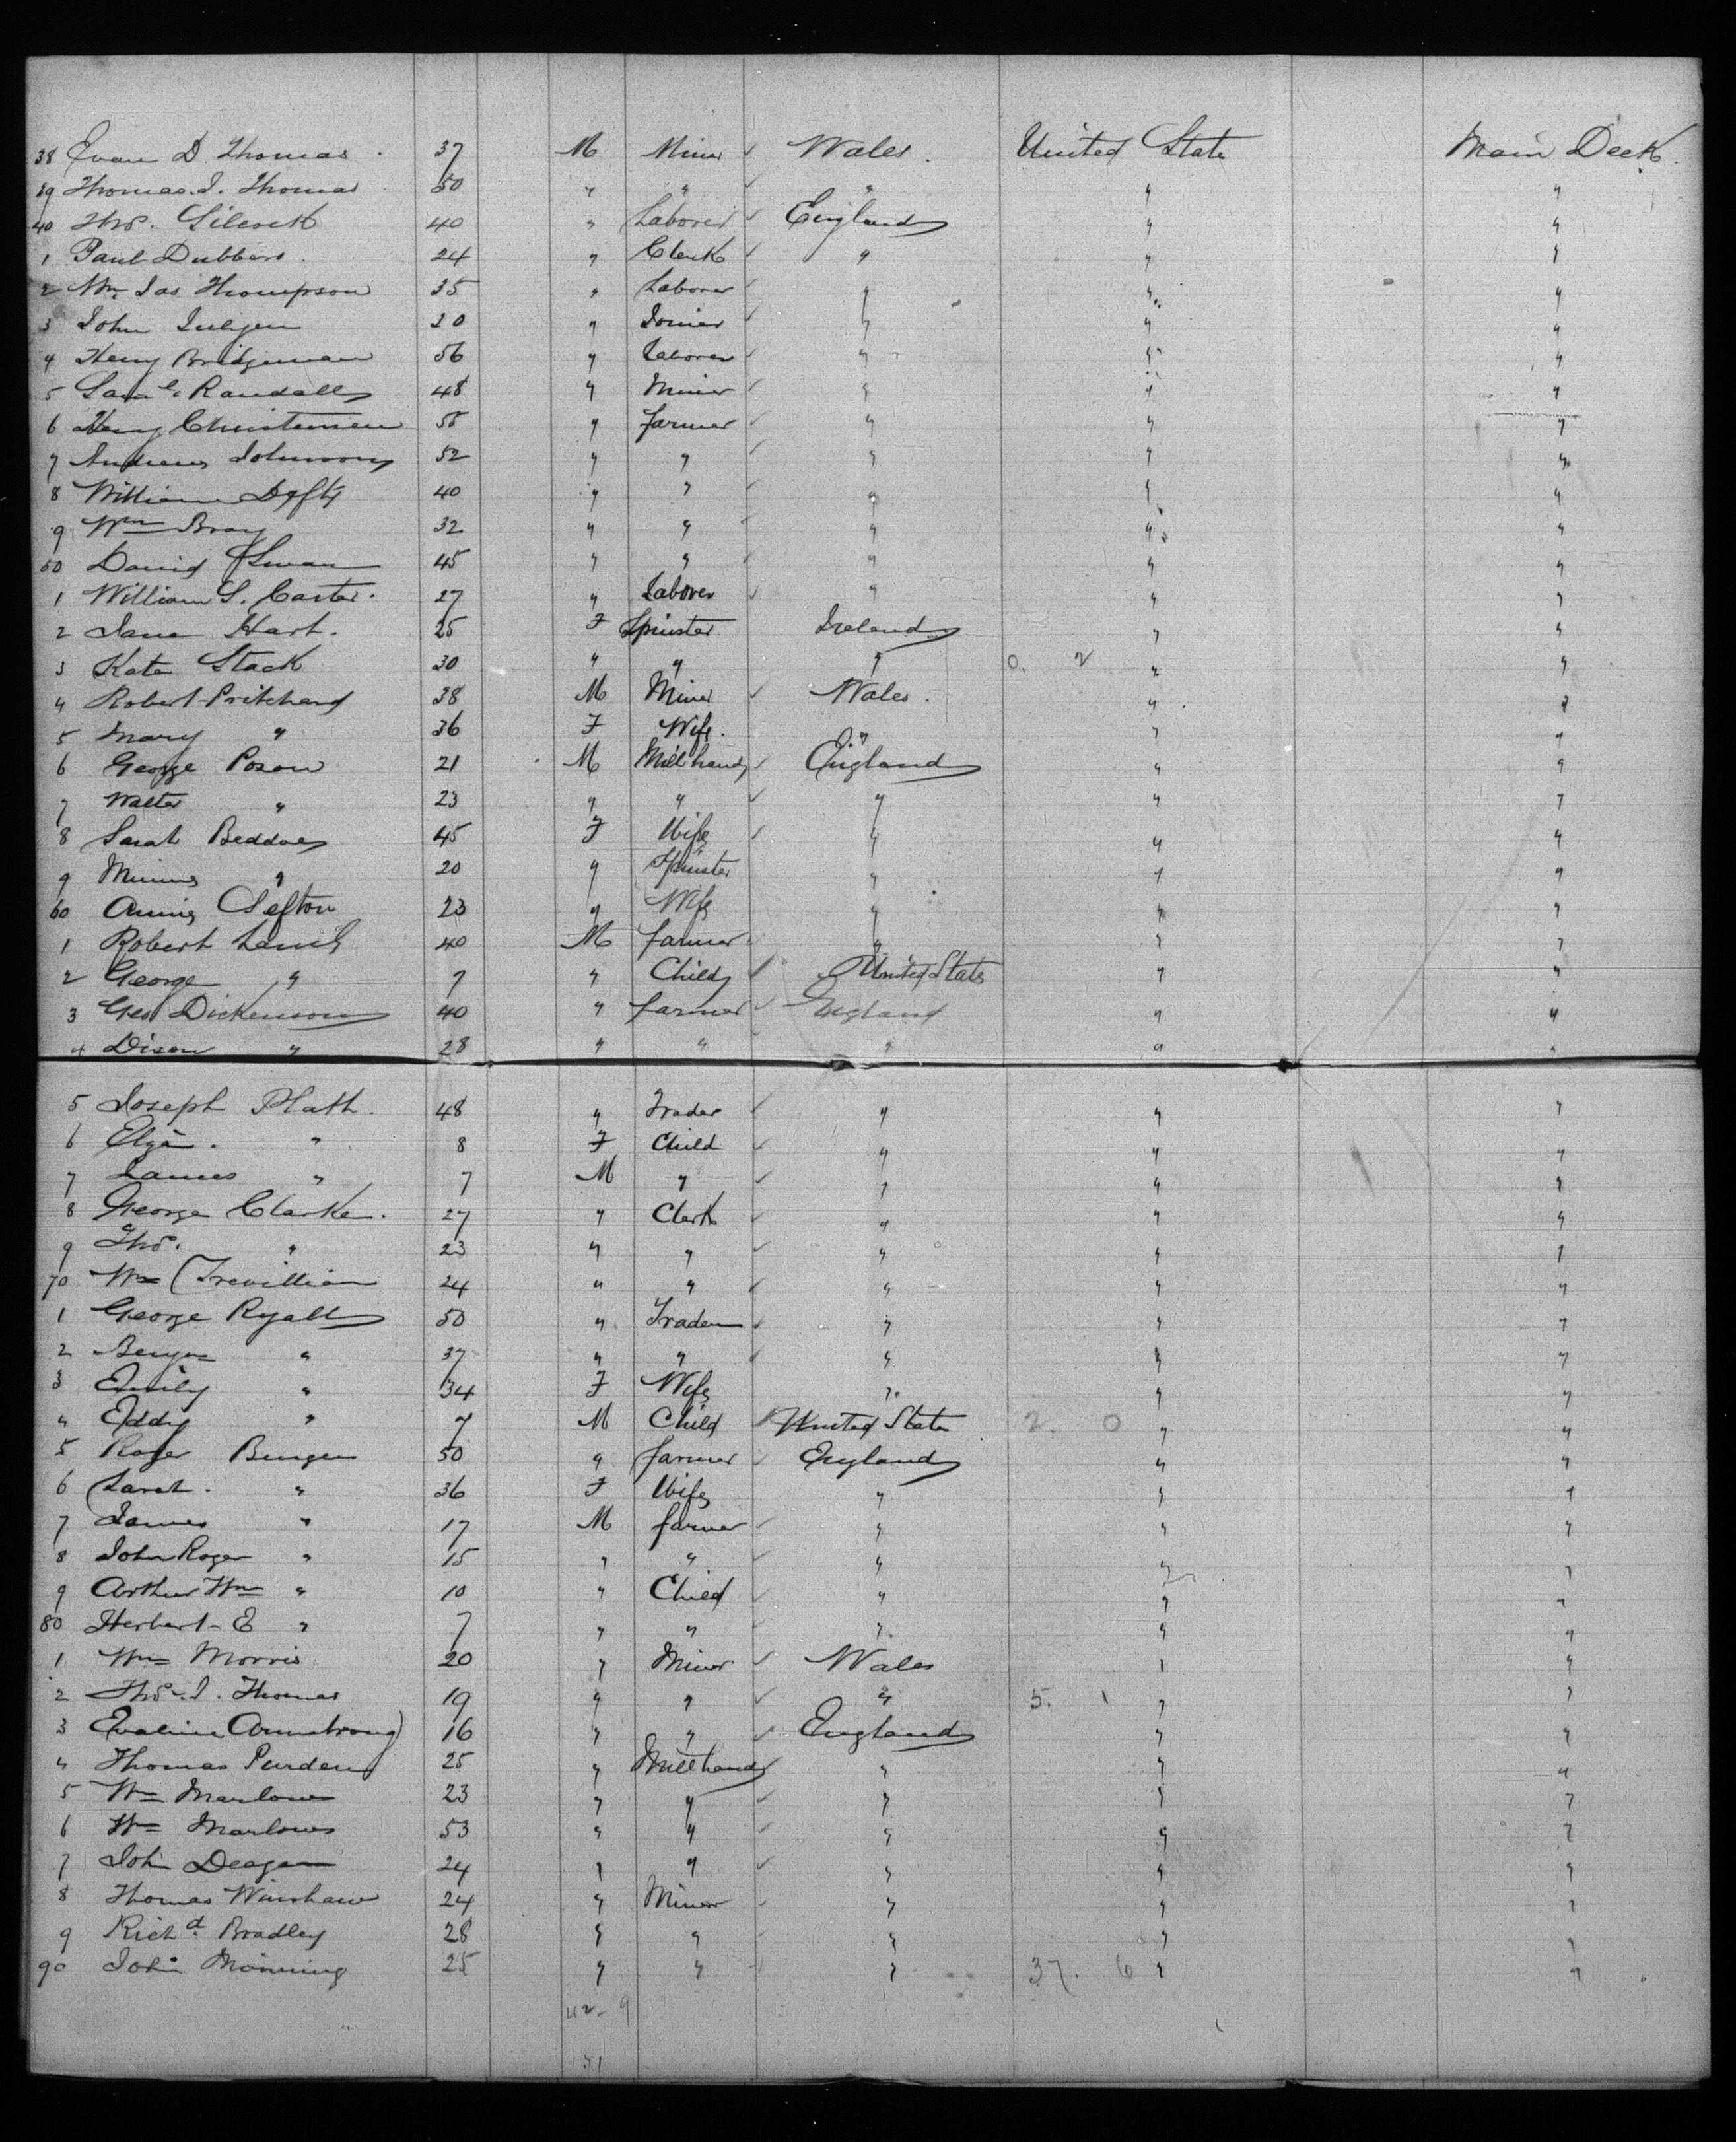 38 Evan D Thomas 37 M Miner Wales United State Main Deck
39 Thomas J. Thomas 50 " " " " "
40 Thos. Silcock 40 " Laborer England " "
1 Paul Dubbers 24 " Clerk " " "
2 Wm Jas Thompson 35 " Laborer " " "
3 John 30 " Joiner " " "
4 Henry Bridgeman 56 " Laborer " " "
5 Saml Randall 48 " Miner " " "
6 Henry Christensen " farmer " " "
7 Andrew Johnson 52 " " " " "
8 William Defty 40 " " " " "
9 Wm Bray 32 " " " " "
50 David Swan 45 " " " " "
1 William S. Carter 27 " Laborer " " "
2 Jane Hart. 25 F Spinster Ireland " "
3 Kate Stack 30 " " " 0. 2 " "
4 Robert Pritchard 38 M Miner Wales " "
5 Mary " 36 F Wife " " "
6 George Poson 21 M Millhand England " "
7 Walter " 23 " " " " "
8 Sarah Beddoes 45 F Wife " " "
9 Minnie " 20 " Spinster " " "
60 Annie Sefton 23 " Wife " " "
1 Robert 40 M farmer " " "
2 George " 7 " Child United States " "
3 Geo Dickenson 40 " farmer England " "
4 Dixon " 28 " " " " "
5 Joseph Platt. 48 " Trader " " "
6 Eliza. " 8 F Child " " "
7 James " 7 M " " " "
8 George Clarke. 27 " Clerk " " "
9 Thos. " 23 " " " " "
70 Wm Trevillian 24 " " " " "
1 George Ryall 50 " Trader " " "
2 Benjn " 37 " " " " "
3 Emily " 34 F Wife " " "
4 Eddy " 7 M Child United State 2. 0 " "
5 Roger 50 " farmer England " "
6 Sarah. " 36 F Wife " " "
7 James " 17 M farmer " " "
8 John Roger " 15 " " " " "
9 Arthur Wm " 10 " Child " " "
80 Herbert E " 7 " " " " "
1 Wm Morris 20 " Miner Wales " "
2 Thos. J. Thomas 19 " " " 5. 1 " "
3 Evaline Armstrong 16 " " England " "
4 Thomas Purden 25 " Millhand " " "
5 Wm Marlow 23 " " " " "
6 Wm Marlowe 53 " " " " "
7 John Deagan 24 " " " " "
8 Thomas Winshaw 24 " Miner " " "
9 Richd. Bradley 28 " " " " "
90 John Manning 25 " " " 37. 6 " "
42-9
51